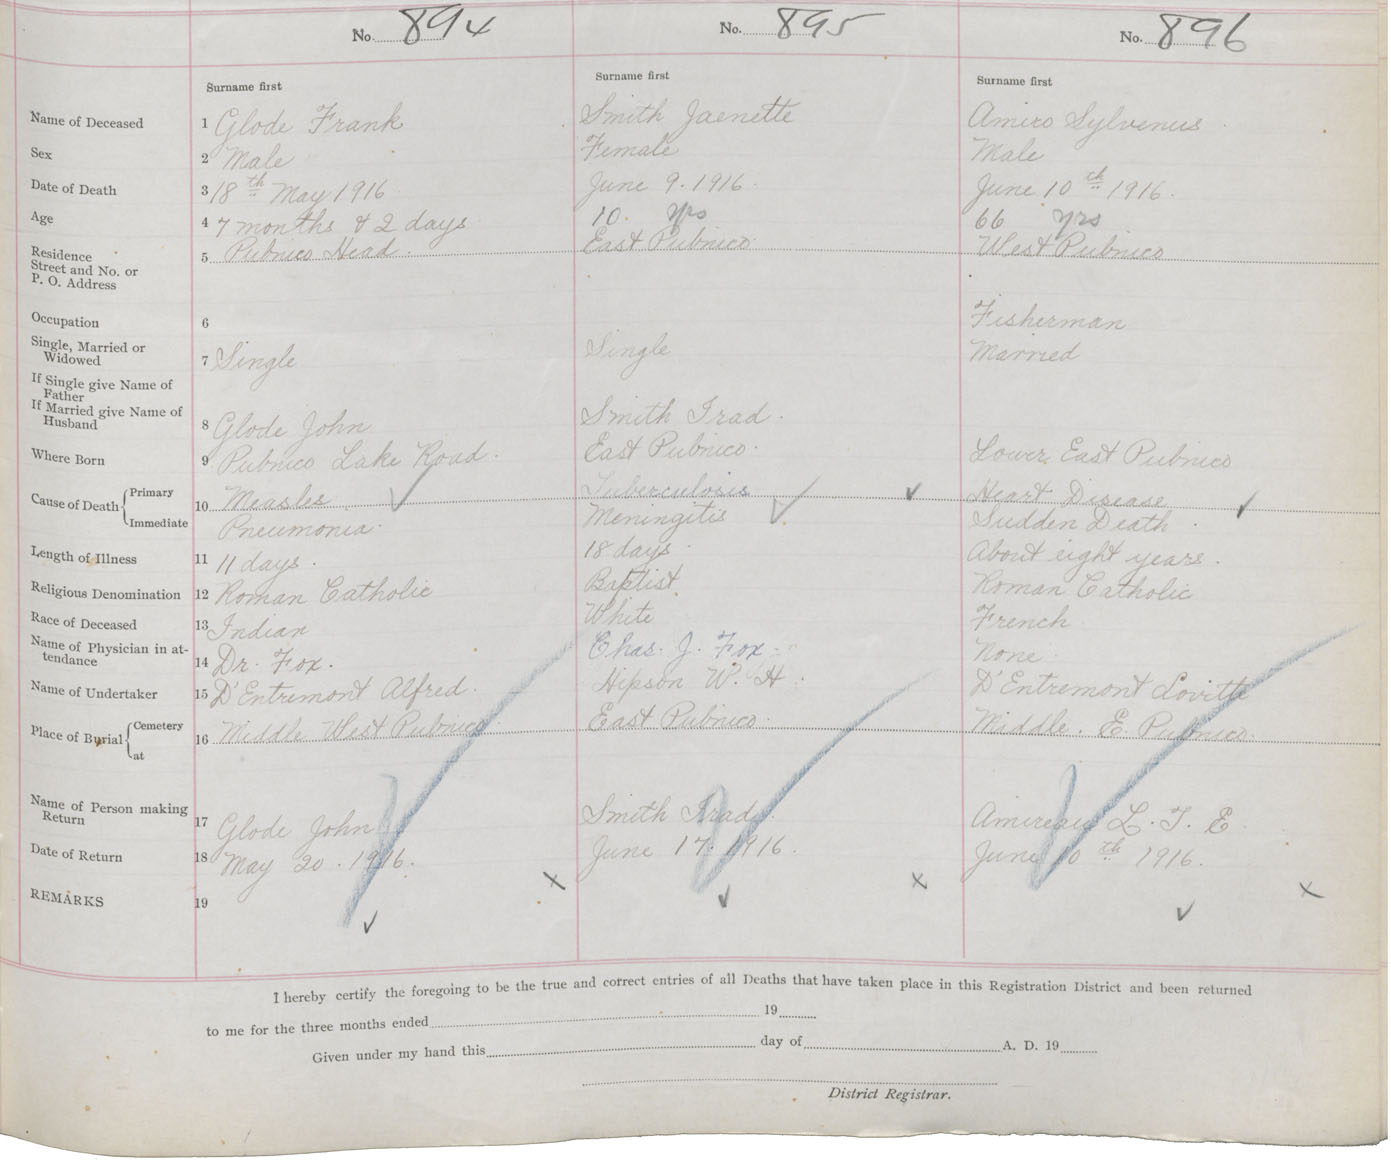 No. 894 No. 895 No. 896
Surname first Surname first Surname first
Name of Deceased 1 Glode Frank Smith Jaenette Amiro Sylvenus
Sex 2 Male Female Male
Date of Death 3 18th May 1916 June 9. 1916. June 10th 1916.
Age 4 7 months & 2 days 10. yrs 66 yrs
Residence
Street and No. or
P. O. Address
5 Pubnico Head. East Pubnico. West Pubnico
Occupation 6 Fisherman
Single, Married or
Widowed 7 Single Single Married
If Single give Name of
Father
If Married give Name of
Husband 8 Glode John Smith Trad.
Where Born 9 Pubnico Lake Road. East Pubnico. Lower East Pubnico
Cause of Death { Primary
Immediate
10 Measles Tuberculosis Heart Disease
Pneumonia. Meningitis Sudden Death.
Length of Illness 11 11 days. 18 days. About eight years.
Religious Denomination 12 Roman Catholic Baptist Roman Catholic
Race of Deceased 13 Indian White French
Name of Physician in at-
tendance 14 Dr. Fox. Chas. J. Fox. None.
Name of Undertaker 15 D'Entremont Alfred. Hipson W. H. D'Entremont Lovitte
Place of Burial { Cemetery
at
16 Middle West Pubnico. East Pubnico. Middle. E. Pubnico.
Name of Person making
Return 17 Glode John Smith Trad. Amireau L. T. E
Date of Return 18 May 20. 1916. June 17. 1916. June 10th 1916.
REMARKS 19
I hereby certify the foregoing to be the true and correct entries of all Deaths that have taken place in this Registration District and been returned
to me for the three months ended 19
Given under my hand this day of A. D. 19
District Registrar.